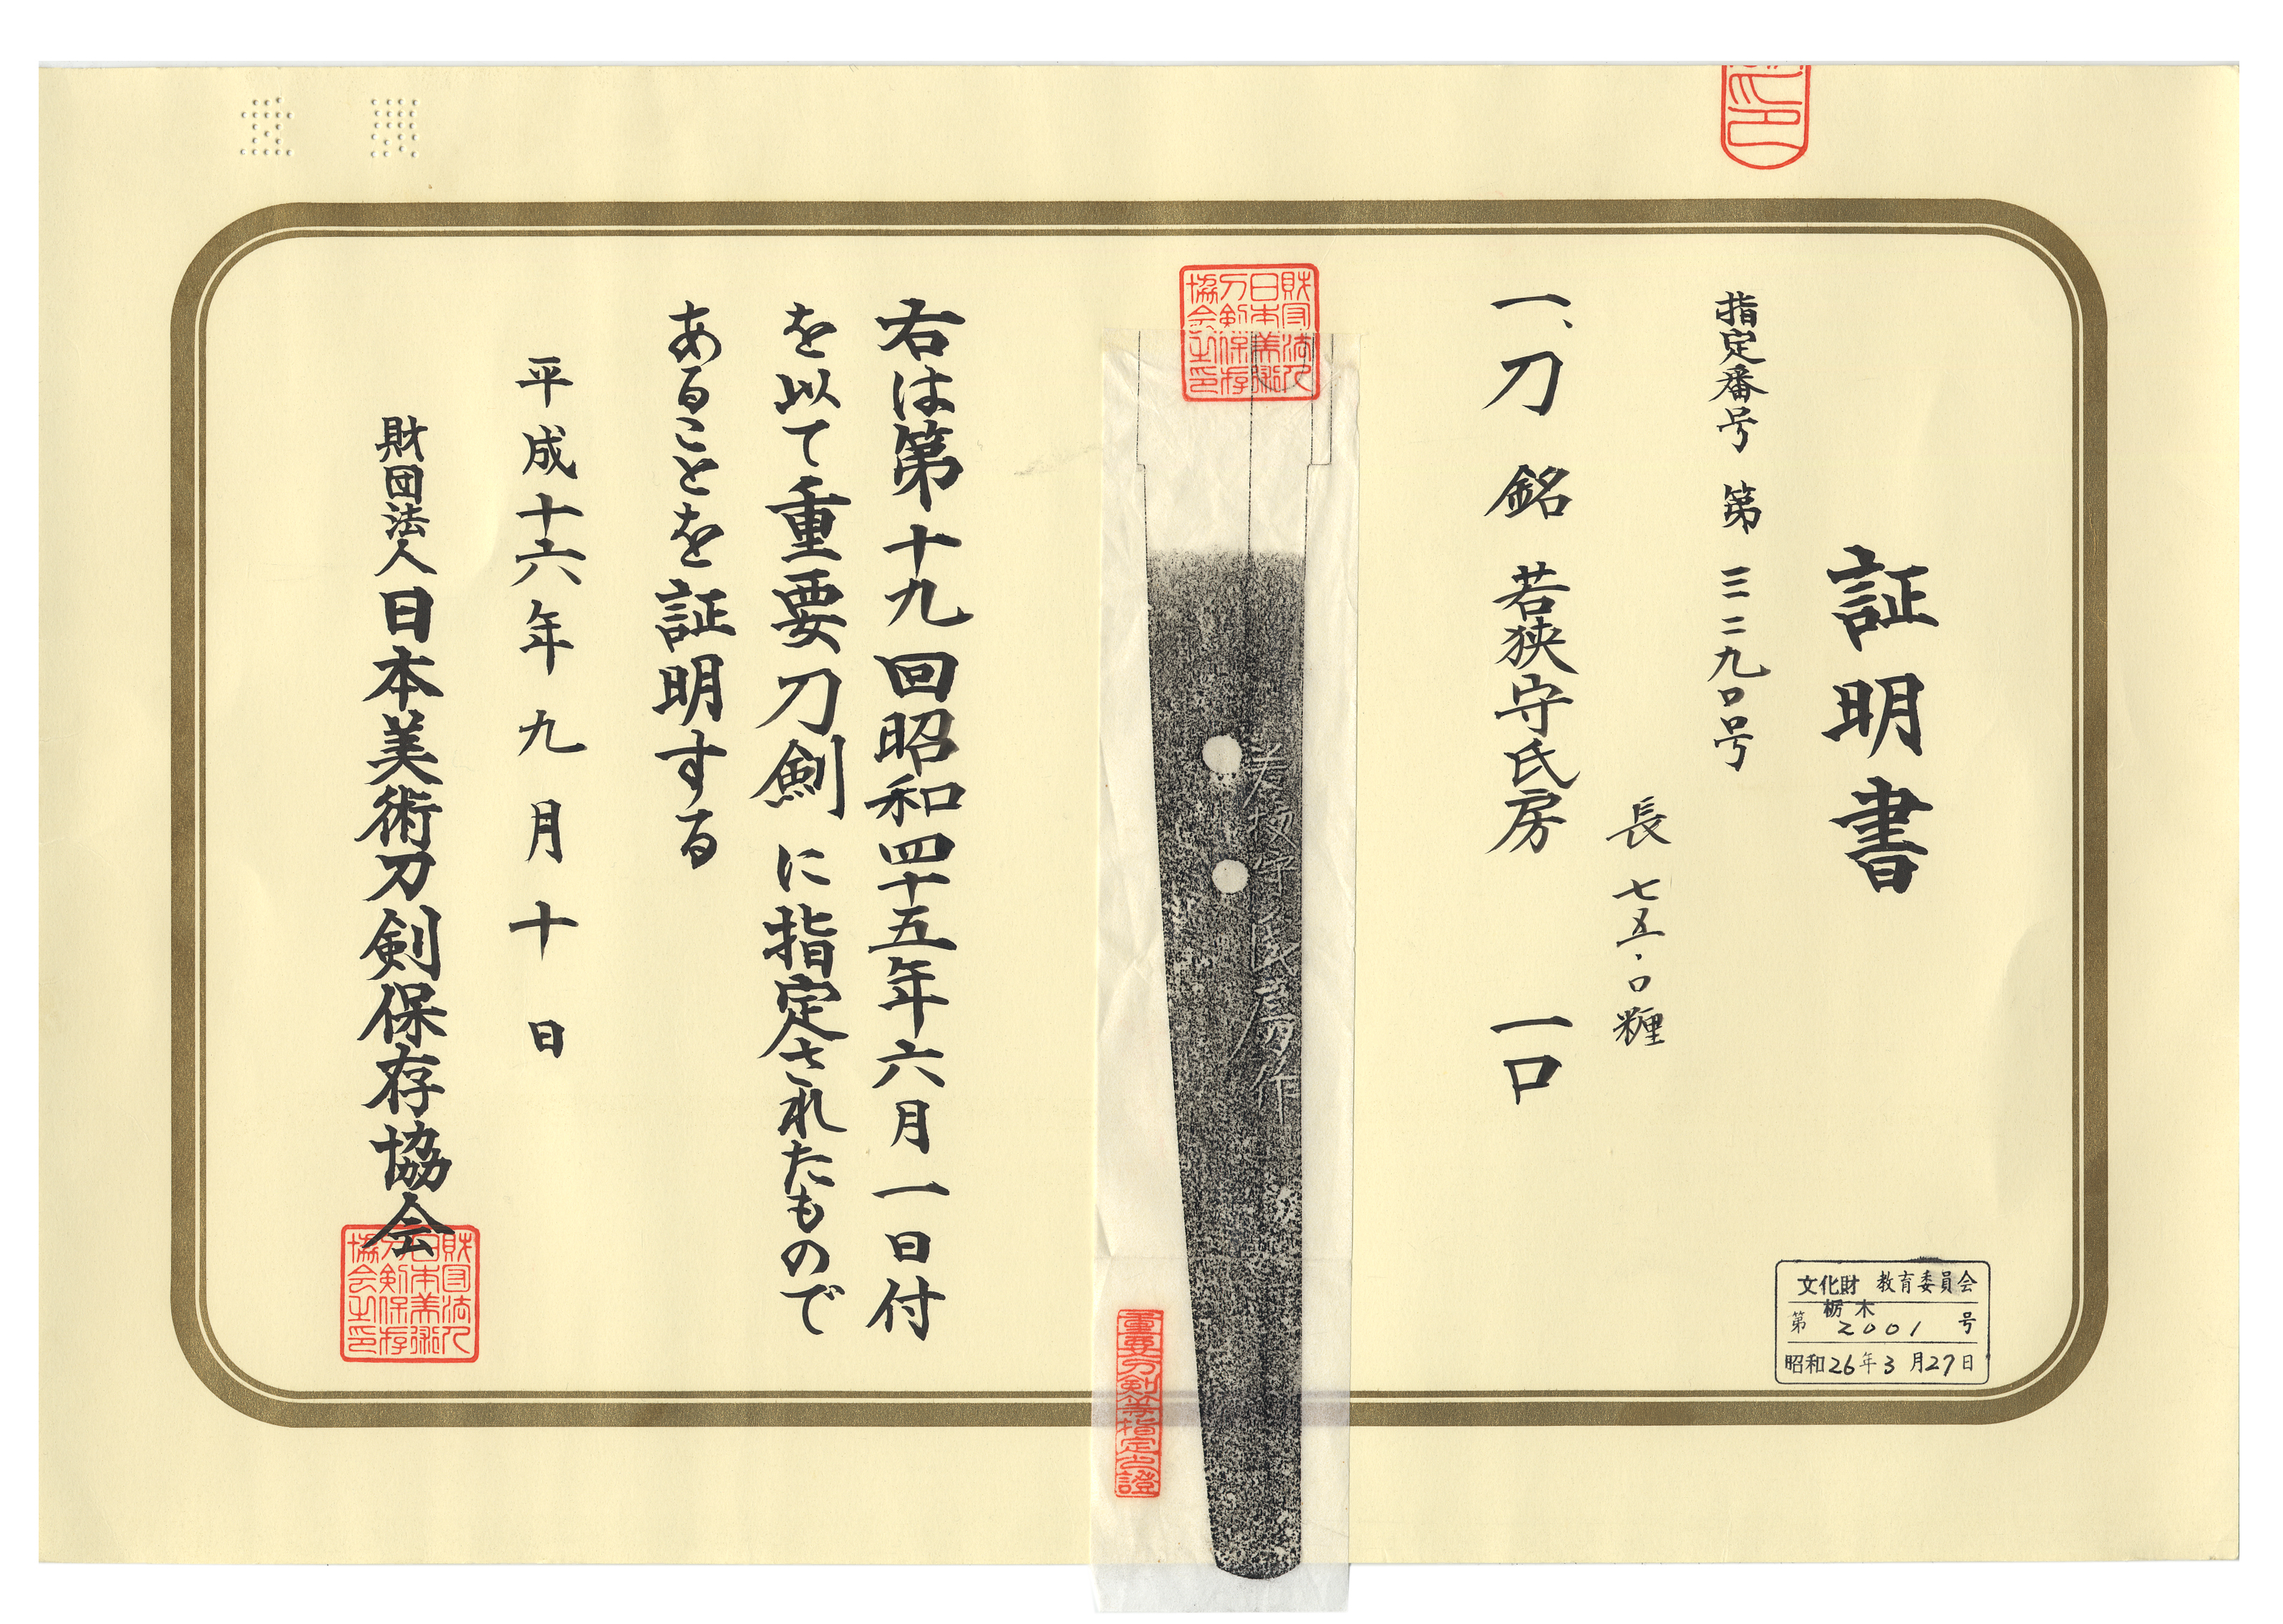 証明書
指定番号 第三二九〇号
長 七五・〇糎
一、刀 銘 若狭守氏房 一口
財団法人日本美術刀剣保存協会之印
若狭守氏房作
重要刀剣等指定之證
右は第十九回昭和四十五年六月一日付
を以て重要刀剣に指定されたもので
あることを証明する
平成十六年九月十日
財団法人日本美術刀剣保存協会
財団法人日本美術刀剣保存協会之印
文化財 教育委員会
栃木
第 2001 号
昭和26年3月27日